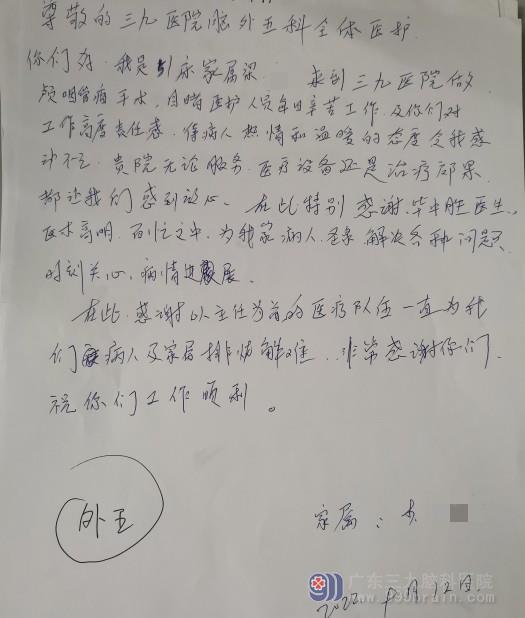 尊敬的三九医院脑外五科全体医护
你们好、我是 床家属梁 来到三九医院做
颅咽管瘤手术,目睹医护人员每日辛苦工作,及你们对
工作高度责任感,待病人热情和温暖的态度令我感
动不已、贵院无论服务、医疗设备还是治疗效果
都让我们感到放心、在此特别感谢毕中胜医生、
医术高明,百忙之中,为我家病人、 解决各种问题
时刻关心,病情进展。
在此,感谢以主任为首的医疗队伍一直为我
们病人及家属排忧解难、非常感谢你们、
祝你们工作顺利。
外五
家属:
广东三九脑科医院
www.999brain.com
2022 月12日